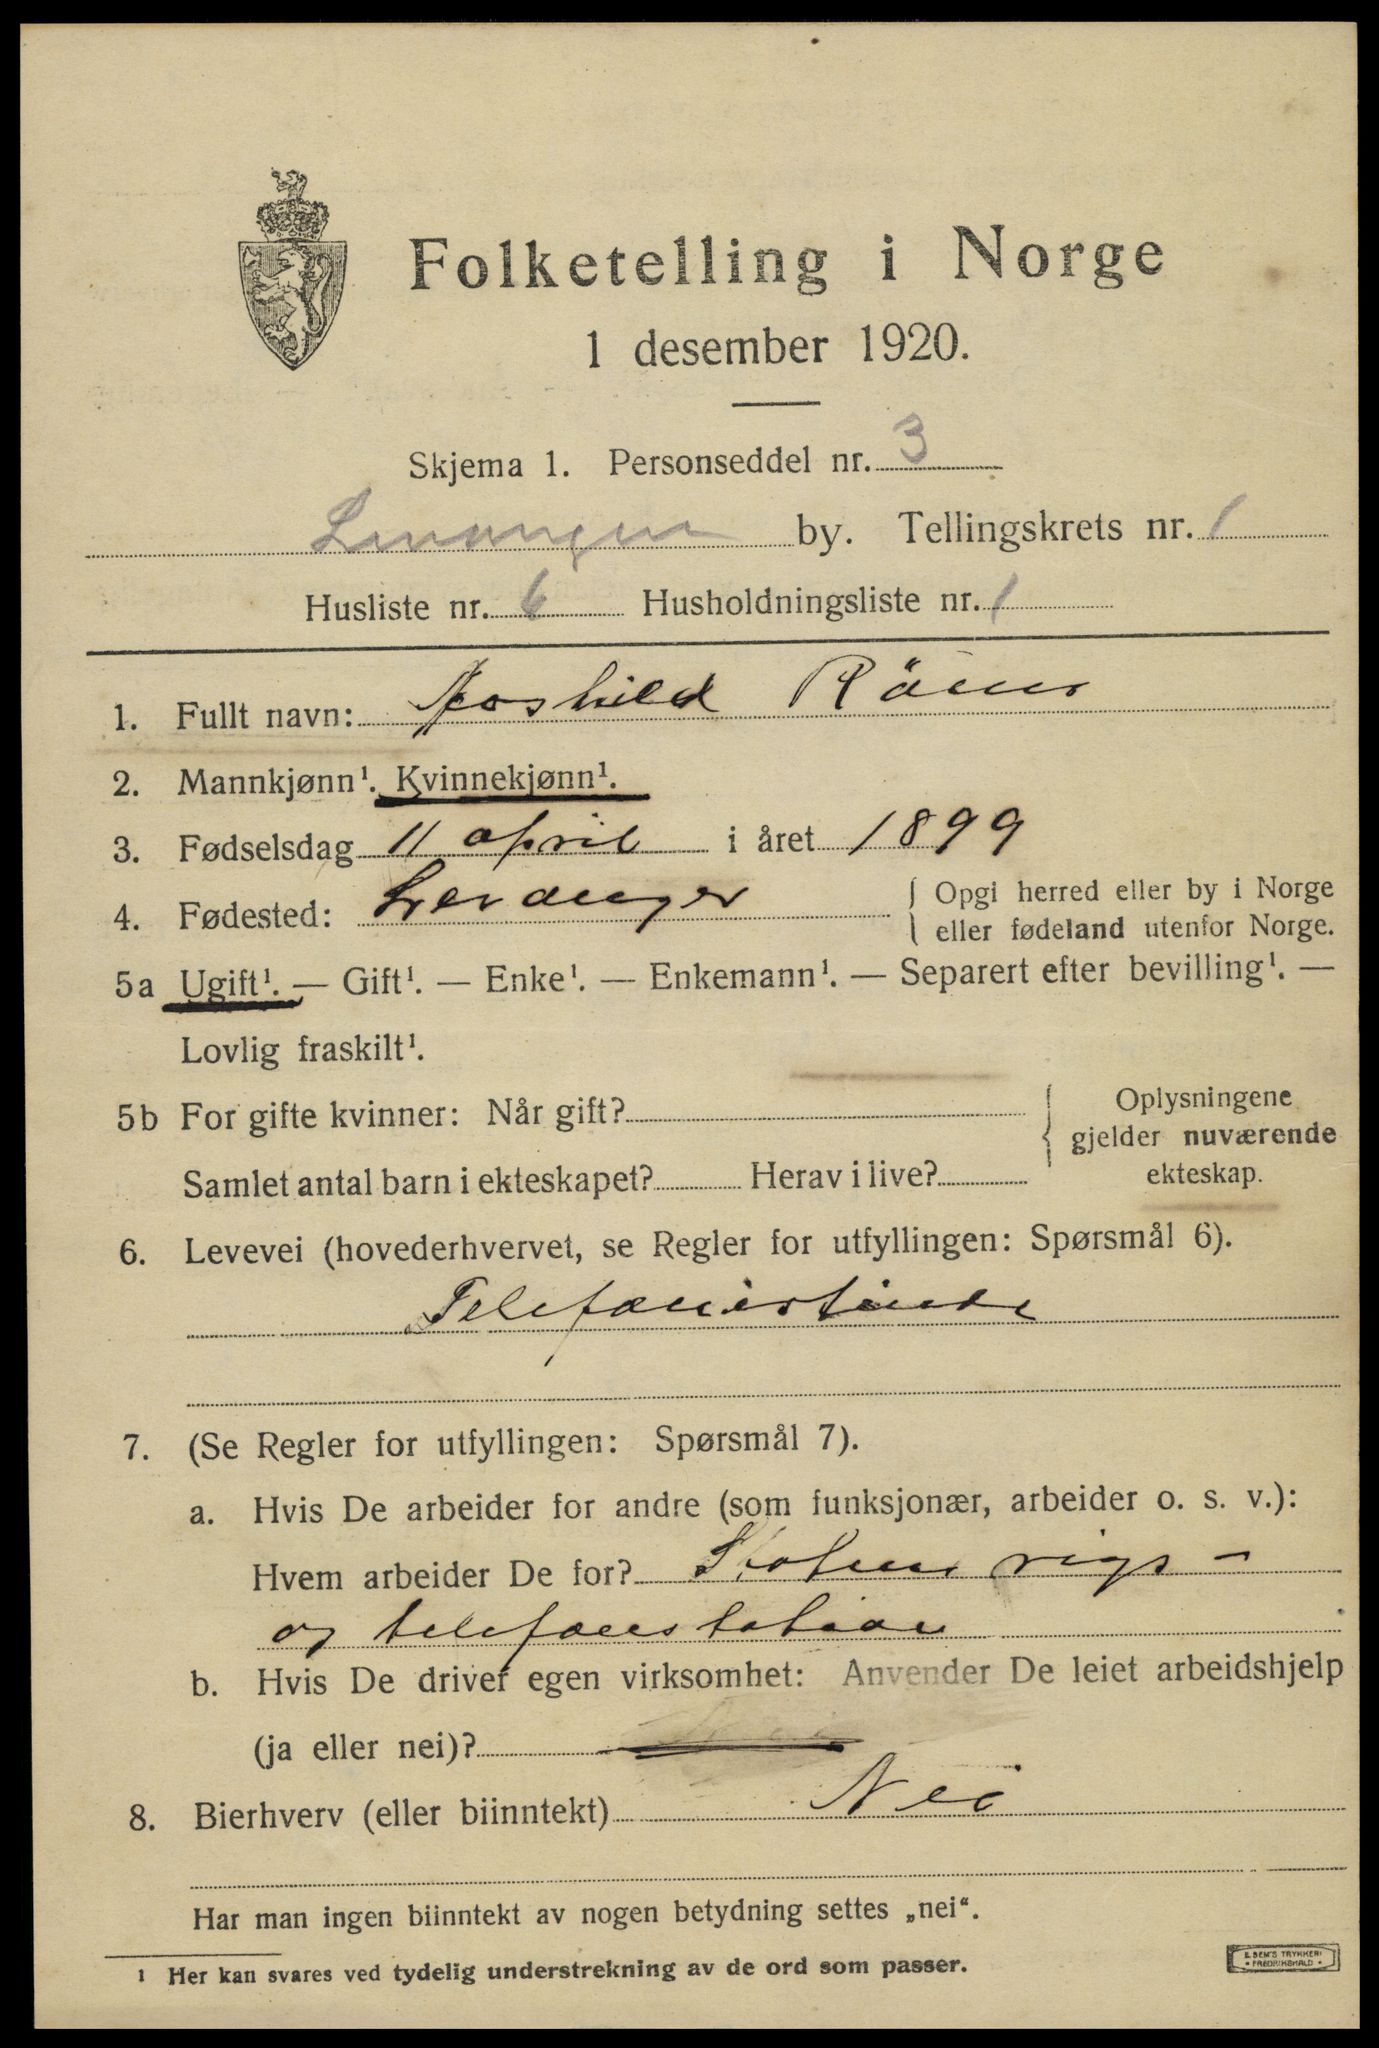 Folketelling i Norge
1 desember 1920.
Skjema 1. Personseddel nr. 3
Levanger by. Tellingskrets nr. 1
Husliste nr. 6 Husholdningsliste nr. 1
1. Fullt navn: Aashild
2. Mannkjønn¹. Kvinnekjønn¹.
3. Fødselsdag 11 april i året 1899
4. Fødested: Levanger { Opgi herred eller by i Norge
eller fødeland utenfor Norge.
5a Ugift¹. — Gift¹. — Enke¹. — Enkemann¹. — Separert efter bevilling¹. —
Lovlig fraskilt¹.
5b For gifte kvinner: Når gift? { Oplysningene
gjelder nuværende
Samlet antal barn i ekteskapet? Herav i live? ekteskap.
6. Levevei (hovederhvervet, se Regler for utfyllingen: Spørsmål 6).
Telefonistinde
7. (Se Regler for utfyllingen: Spørsmål 7).
a. Hvis De arbeider for andre (som funksjonær, arbeider o. s. v.):
Hvem arbeider De for? Statens rigs-
og telefonstation
b. Hvis De driver egen virksomhet: Anvender De leiet arbeidshjelp
(ja eller nei)?
8. Bierhverv (eller biinntekt) Nei
Har man ingen biinntekt av nogen betydning settes „nei“.
¹ Her kan svares ved tydelig understrekning av de ord som passer.
E. SEM'S TRYKKERI
• FREDRIKSHALD •